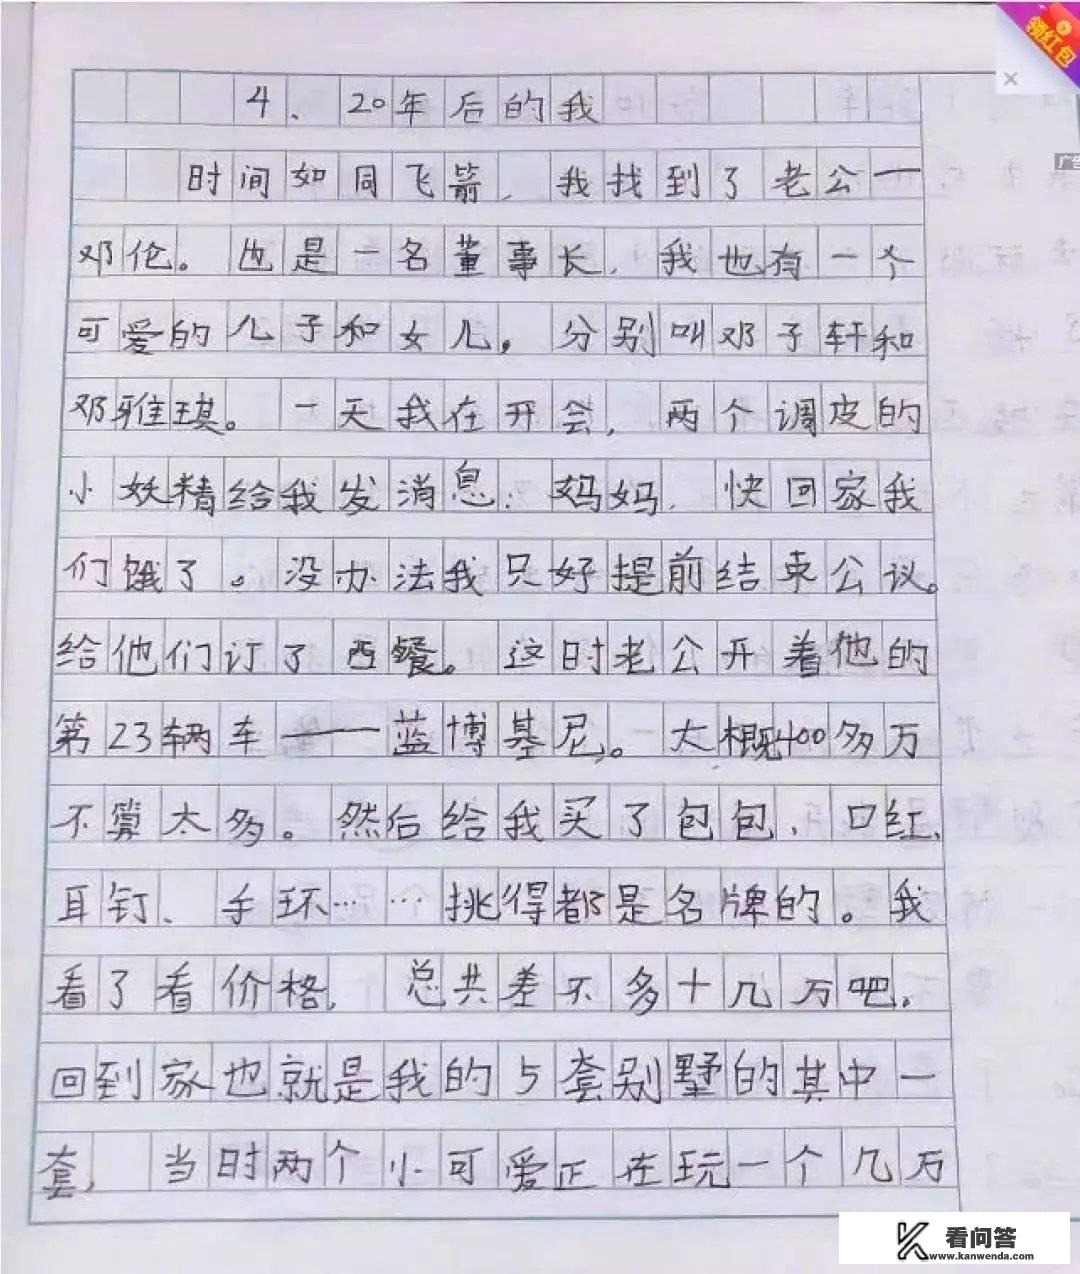 领红包
广告
4、20年后的我
时间如同飞箭，我找到了老公一
邓伦。也是一名董事长，我也有一个
可爱的儿子和女儿，分别叫邓子轩和
邓雅琪。一天我在开会，两个调皮的
小妖精给我发消息：妈妈，快回家我
们饿了。没办法我只好提前结束公议。
给他们订了西餐。这时老公开着他的
第23辆车——蓝博基尼。大概400多万
不算太多。然后给我买了包包、口红、
耳钉、手环……挑得都是名牌的。我
看了看价格，总共差不多十几万吧，
回到家也就是我的5套别墅的其中一
套，当时两个小可爱正在玩一个几万
K 看问答
www.kanwenda.com